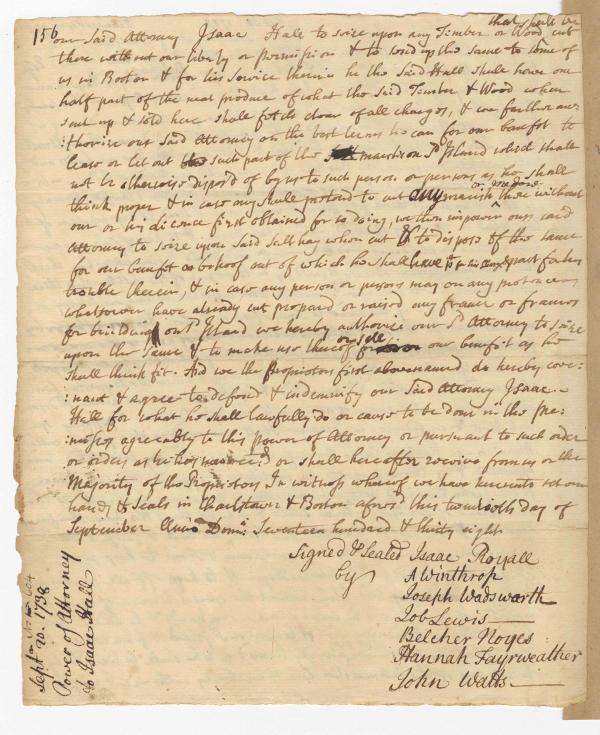 156
that shall be
our Said Attorney Isaac Hall to seize upon any Timber or Wood, cut
there without our liberty or permission & to send up the same to some of
us in Boston & for his Service therein he the said Hall shall have one
half part of the neat produce of what the said Timber & Wood when
sent up & sold here shall fetch clear of all charges, & we further au=
:thorize our said Attorney on the best terms he can for our benefit to
lease or let out such part of the marsh on sd. Island which shall
not be otherwise dispos'd of by us to such person or persons as he shall
think proper & in case any shall pretend to cut any marsh there without
our or his licence first obtained for so doing, we then impower our said
Attorney to seize upon said Salt hay when cut & to dispose of the same
for our benefit & behoof out of which he shall have part for his
trouble therein, & in case any person or persons may on any pretence
whatsoever have already cut prepar'd or raised any frame or frames
for building on sd. Island we hereby authorize our sd. Attorney to seize
upon the same & to make use thereof or sell for our benefit as he
shall think fit. And we the Proprietors first abovenamed do hereby cove=
:nant & agree to defend & indemnify our Said Attorney Isaac
Hall for what he shall lawfully do or cause to be done in the pre=
:mises agreeably to this power of Attorney or pursuant to such order
or orders as he has receiv'd or shall hereafter receive from us or the
Majority of the Proprietors In witness whereof we have hereunto set our
hands & Seals in Charlstown & Boston afores'd this twentieth day of
September Anno Dom: Seventeen hundred & thirty eight
Signed & Sealed Isaac Royall
by A Winthrop
Joseph Wadsworth
Job Lewis
Belcher Noyes
Hannah Fayrweather
John Watts
Sept. 20. 1738
Power of Attorney
to Isaac Hall